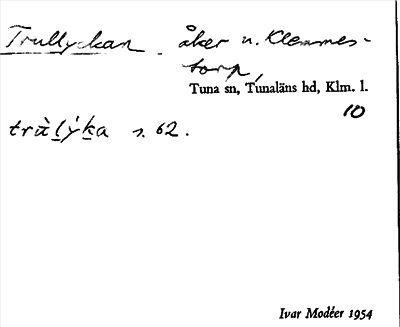 Trullyckan. åker u. Klemmes-
torp,
Tuna sn, Tunaläns hd, Klm. l.
10
trùlýka s. 62.
Ivar Modéer 1954